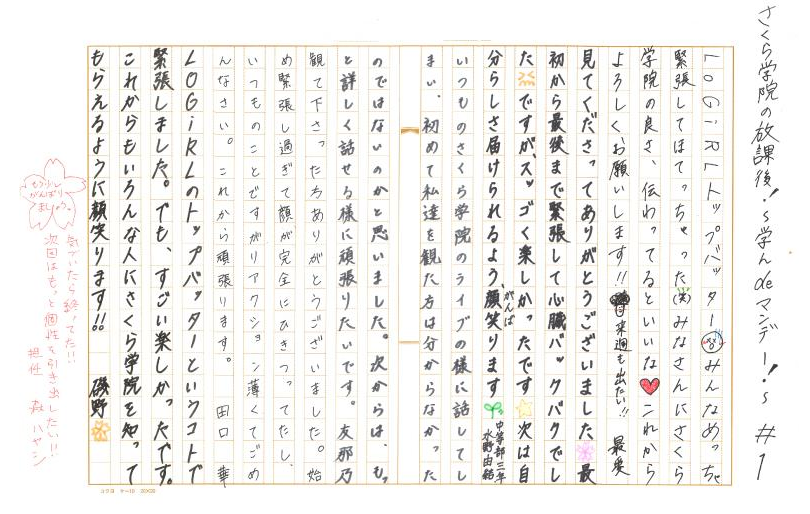 さくら学院の放課後!〜学んdeマンデー!〜#1
LoGiRLトップバッター みんなめっちゃ
緊張してほてっちゃった(笑)みなさんにさくら
学院の良さ、伝わってるといいな♥これから
よろしくお願いします!!来週も出たい!! 最愛
見てくださってありがとうございました 最
初から最後まで緊張して心臓バックバクでし
た ですが、スッゴく楽しかったです 次は自
分らしさ届けられるよう、顔笑ります
がんば
中等部三年
水野由結
いつものさくら学院のライブの様に話してし
まい、初めて私達を観た方は分からなかった
のではないのかと思いました。次からは、もっ
と詳しく話せる様に頑張りたいです。 友那乃
観て下さったちありがとうございました。始
め緊張し過ぎて顔が完全にひきつってたし、
いつものことですがリアクション薄くてごめ
んなさい。これから頑張ります。 田口 華
LOGiRLのトップバッターというコトで
緊張しました。でも、すごい楽しかったです。
これからもいろんな人にさくら学院を知って
もらえるように顔笑ります!! 磯野
もう少し
がんばり
ましょう。
気づいたら終ってた!!
次回はもっと個性を引き出したい!!
担任 森ハヤシ